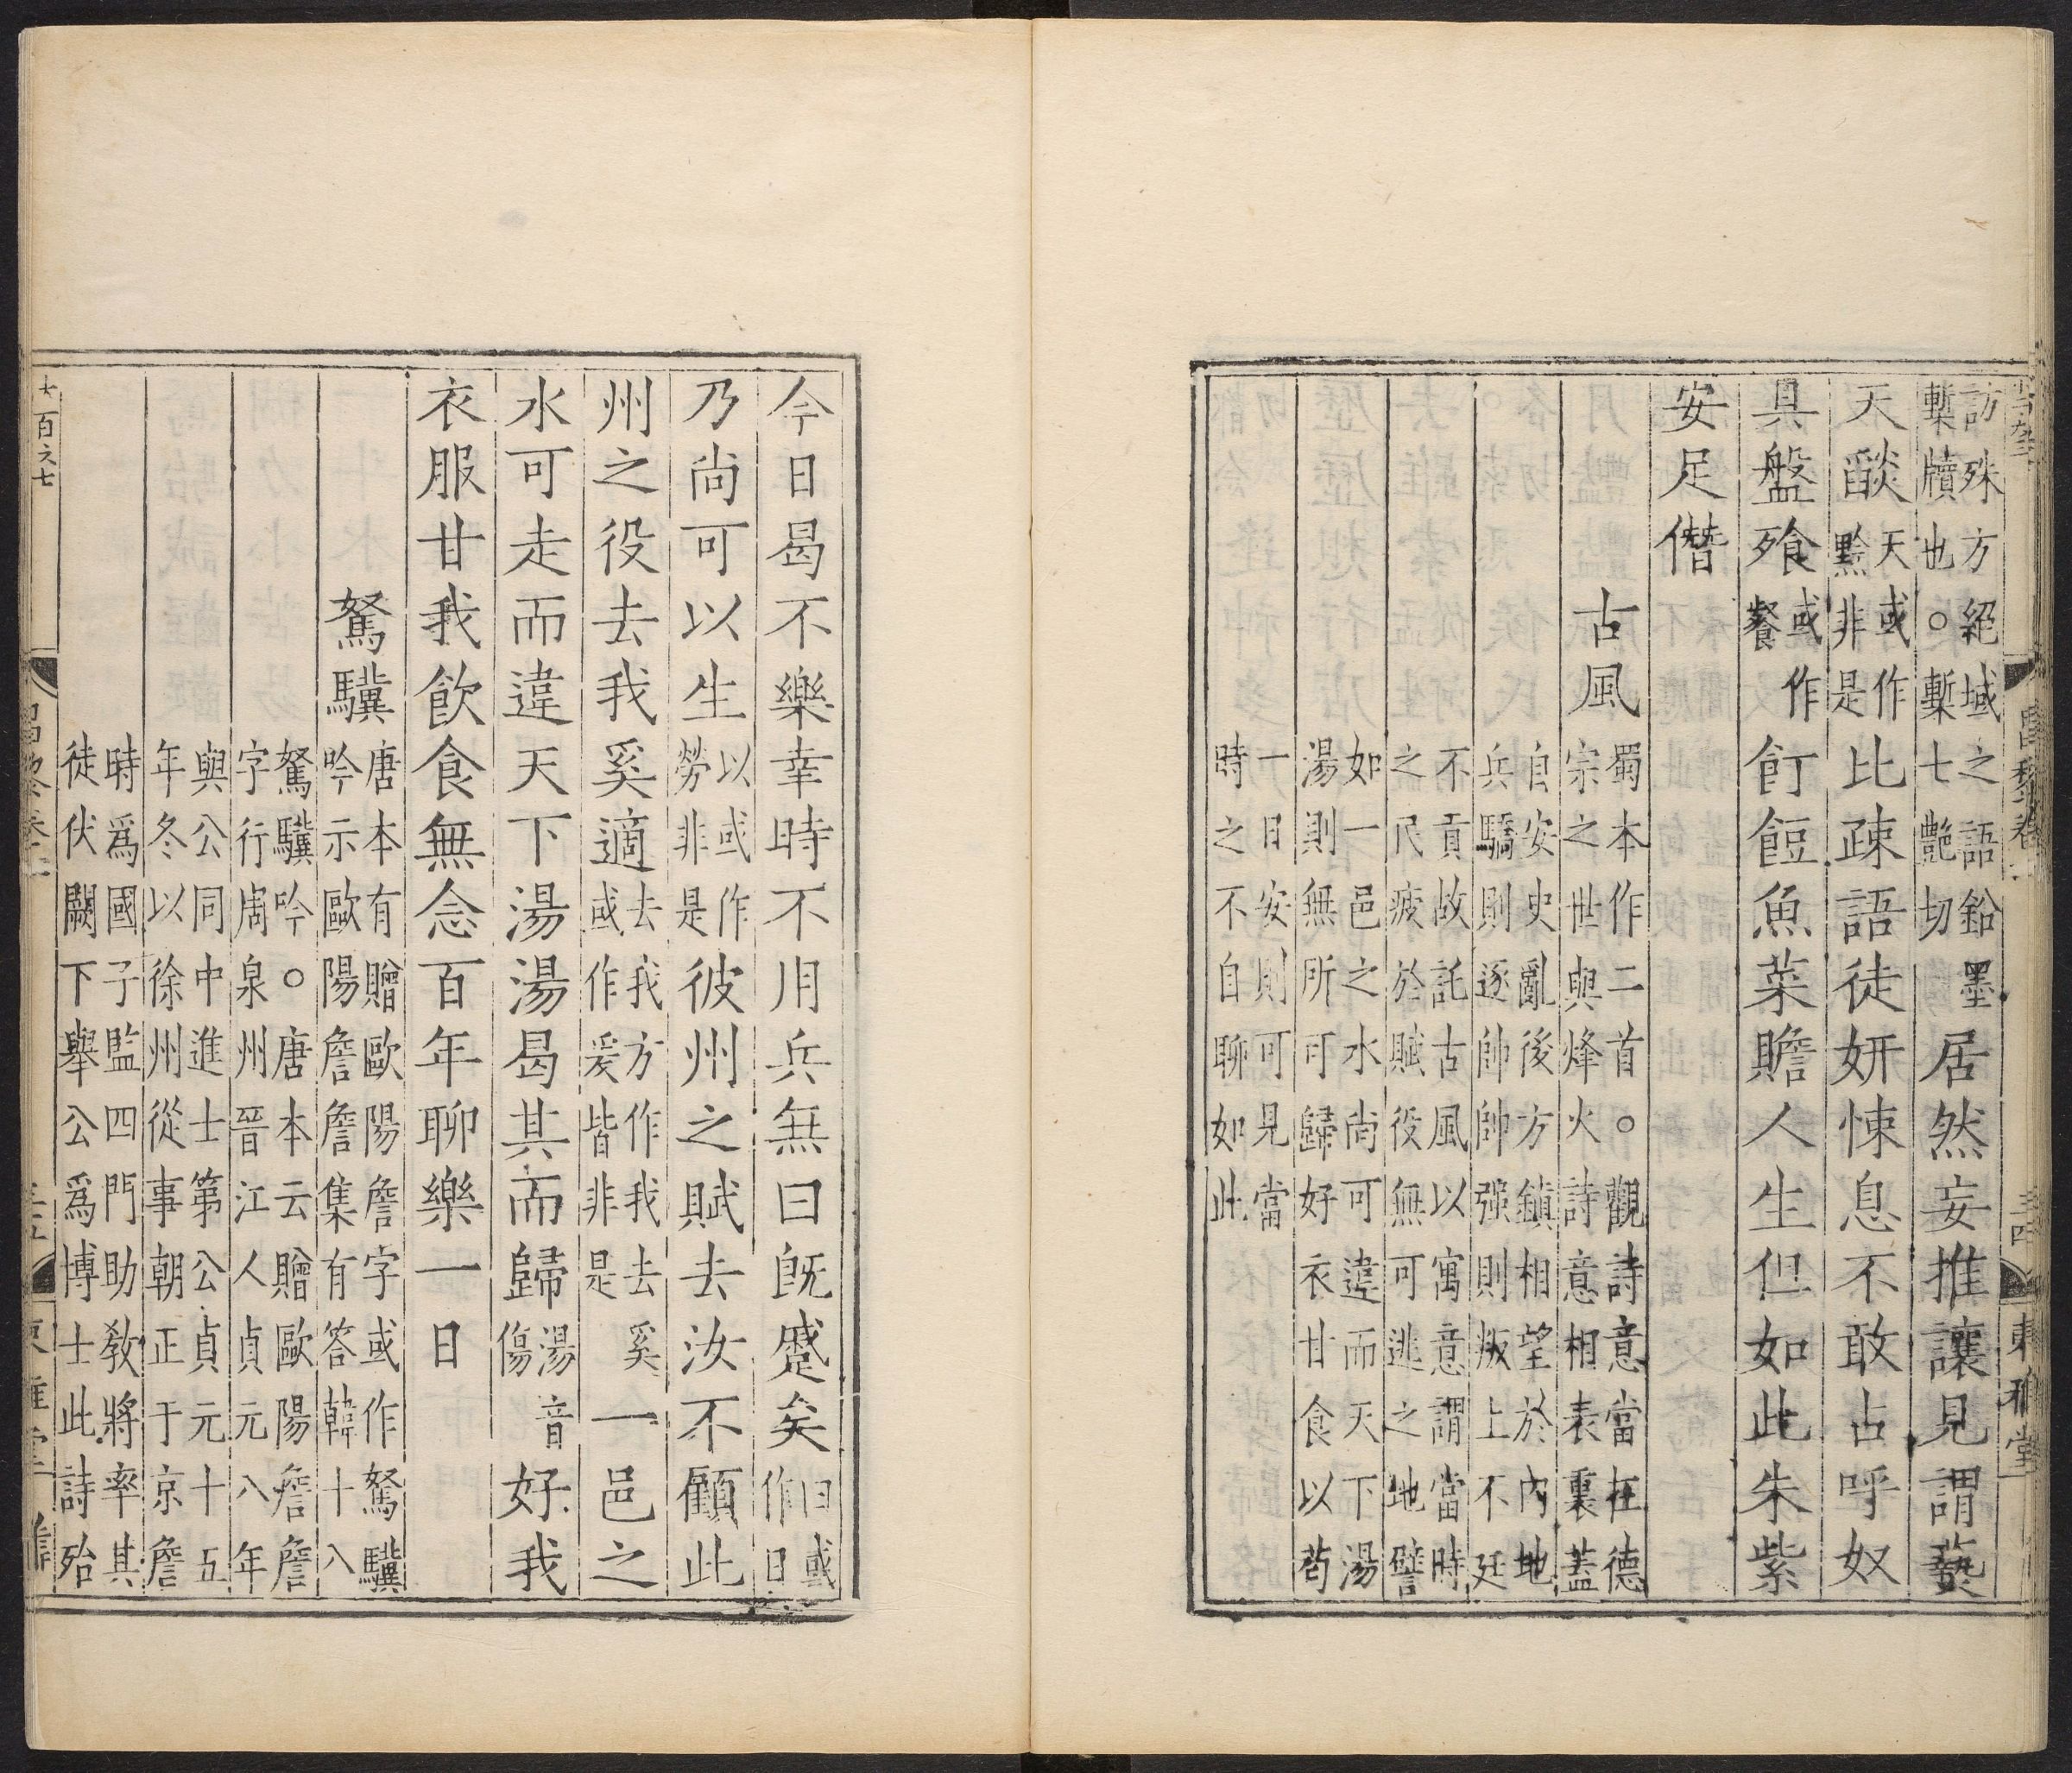 訪殊方絕域之語鉛墨
槧牘也。槧七艷切
居然妄推讓見謂藝
天燄
天或作
黥非是
比疎語徒妍悚息不敢占呼奴
具盤飱
或作
餐
飣餖魚菜贍人生但如此朱紫
安足僭
古風
蜀本作二首。觀詩意當在德
宗之世與烽火詩意相表裏蓋
自安史亂後方鎮相望於內地
兵驕則逐帥帥强則叛上不廷
不貢故託古風以寓意謂當時
之民疲於賦役無可逃之地譬
如一邑之水尚可違而天下湯
湯則無所可歸好衣甘食以苟
一日安則可見當
時之不自聊如此
昌黎卷
三四
東雅堂
今日曷不樂幸時不用兵無曰旣蹙矣
曰或
作日
乃尚可以生
以或作
勞非是
彼州之賦去汝不顧此
州之役去我奚適
去我方作我去奚
或作爰皆非是
一邑之
水可走而違天下湯湯曷其而歸
湯音
傷
好我
衣服甘我飲食無念百年聊樂一日
駑驥
唐本有贈歐陽詹字或作駑驥
吟示歐陽詹詹集有答韓十八
駑驥吟。唐本云贈歐陽詹詹
字行周泉州晉江人貞元八年
與公同中進士第公貞元十五
年冬以徐州從事朝正于京詹
時爲國子監四門助敎將率其
徒伏闕下舉公爲博士此詩殆